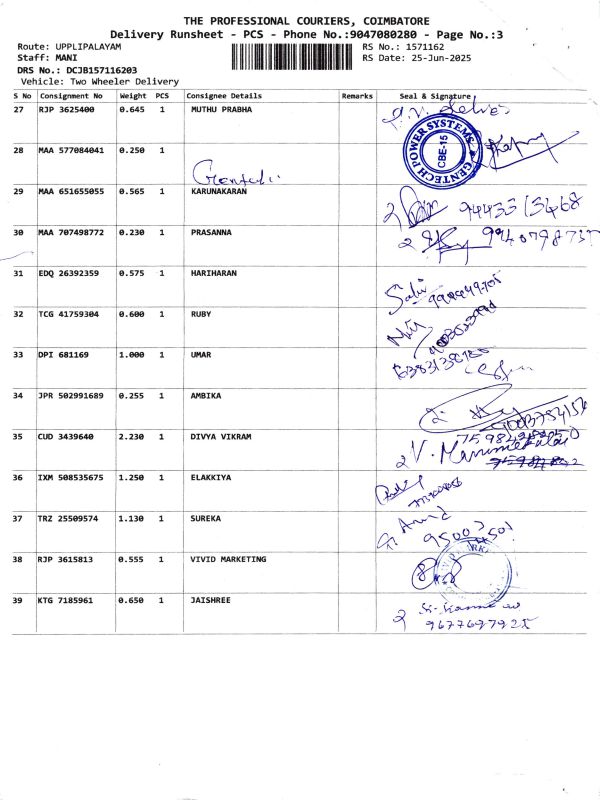 THE PROFESSIONAL COURIERS, COIMBATORE
Delivery Runsheet - PCS - Phone No.:9047080280 - Page No.:3
Route: UPPLIPALAYAM RS No.: 1571162
Staff: MANI RS Date: 25-Jun-2025
DRS No.: DCJB157116203
Vehicle: Two Wheeler Delivery
S No Consignment No Weight PCS Consignee Details Remarks Seal & Signature
27 RJP 3625400 0.645 1 MUTHU PRABHA
28 MAA 577084041 0.250 1
GENTECH POWER SYSTEMS
CBE-15
29 MAA 651655055 0.565 1 KARUNAKARAN 2 9443313468
30 MAA 707498772 0.230 1 PRASANNA 2
31 EDQ 26392359 0.575 1 HARIHARAN
32 TCG 41759304 0.600 1 RUBY
33 DPI 681169 1.000 1 UMAR
34 JPR 502991689 0.255 1 AMBIKA
35 CUD 3439640 2.230 1 DIVYA VIKRAM 2
36 IXM 508535675 1.250 1 ELAKKIYA
37 TRZ 25509574 1.130 1 SUREKA
38 RJP 3615813 0.555 1 VIVID MARKETING
39 KTG 7185961 0.650 1 JAISHREE 2
9677697925